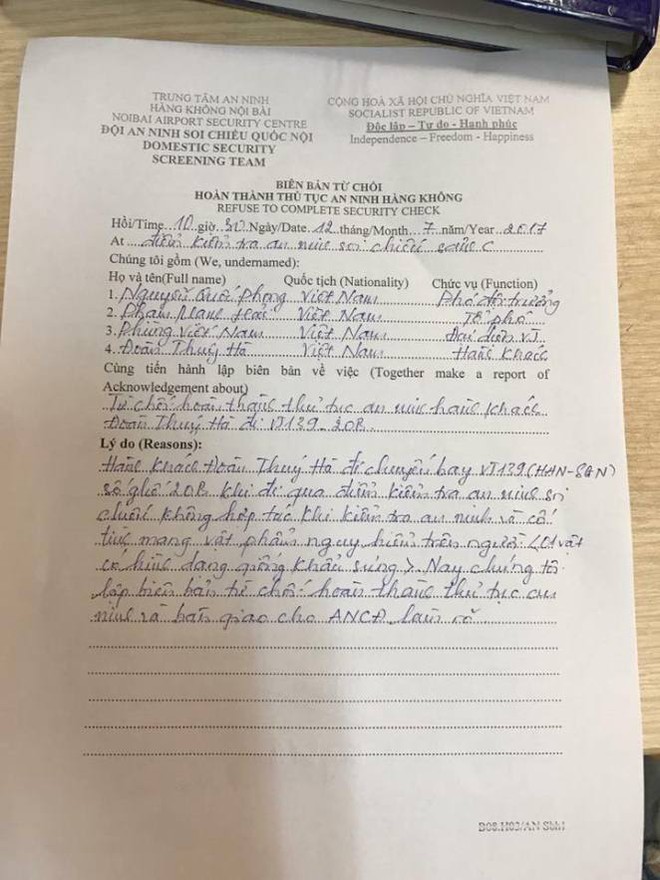 TRUNG TÂM AN NINH
HÀNG KHÔNG NỘI BÀI
NOIBAI AIRPORT SECURITY CENTRE
ĐỘI AN NINH SOI CHIẾU QUỐC NỘI
DOMESTIC SECURITY
SCREENING TEAM
CỘNG HOÀ XÃ HỘI CHỦ NGHĨA VIỆT NAM
SOCIALIST REPUBLIC OF VIETNAM
Độc lập – Tự do - Hạnh phúc
Independence – Freedom - Happiness
BIÊN BẢN TỪ CHỐI
HOÀN THÀNH THỦ TỤC AN NINH HÀNG KHÔNG
REFUSE TO COMPLETE SECURITY CHECK
Hồi/Time 10 giờ 30 Ngày/Date 12 tháng/Month 7 năm/Year 2017
At điểm kiểm tra an ninh soi chiếu sảnh C
Chúng tôi gồm (We, undernamed):
Họ và tên(Full name) Quốc tịch (Nationality) Chức vụ (Function)
1. Nguyễn Quốc Phong Việt Nam Phó đội trưởng
2. Phạm Việt Nam Tổ phó
3. Phùng Viết Nam Việt Nam Đại diện VJ
4. Đoàn Thuý Hà Việt Nam Hành khách
Cùng tiến hành lập biên bản về việc (Together make a report of
Acknowledgement about)
Từ chối hoàn thành thủ tục an ninh hành khách
Đoàn Thuý Hà đi VJ139 20B
Lý do (Reasons):
Hành khách Đoàn Thuý Hà đi chuyến bay VJ139 (HAN-SGN)
số ghế 20B khi đi qua điểm kiểm tra an ninh soi
chiếu không hợp tác khi kiểm tra an ninh và cố
tình mang vật phẩm nguy hiểm trên người <01 vật
có hình dạng giống khẩu súng>. Nay chúng tôi
lập biên bản từ chối hoàn thành thủ tục an
ninh và bàn giao cho ANCĐ làm rõ.
B08.H03/AN